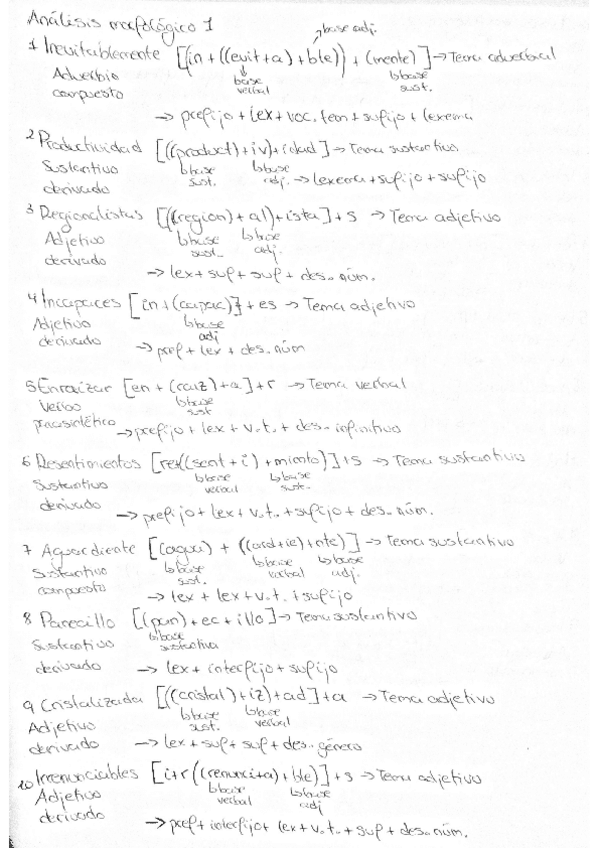 Análisis morfológico 1
↗base adj.
1 Inevitablemente [(in + ((evit+a) + ble)) + (mente)] → Tema adverbial
Adverbio ↓ base verbal ↳base sust.
compuesto
→ prefijo + lex + voc. tem + sufijo + lexema
2 Productividad [((product) + iv) + idad] → Tema sustantivo
Sustantivo ↳base sust. ↳base adj. → lexema + sufijo + sufijo
derivado
3 Regionalistas [((region) + al) + ista] + s → Tema adjetivo
Adjetivo ↳base sust. ↳base adj.
derivado
→ lex + suf + suf + des. núm.
4 Incapaces [in + (capac)] + es → Tema adjetivo
Adjetivo ↳base adj
derivado → pref + lex + des. núm
5 Enraizar [en + (raiz) + a] + r → Tema verbal
Verbo ↳base sust
parasintético → prefijo + lex + v.t. + des. infinitivo
6 Resentimientos [re((sent + i) + miento)] + s → Tema sustantivo
Sustantivo ↳base verbal ↳base sust.
derivado → prefijo + lex + v.t. + sufijo + des. núm.
7 Aguardiente [(agua) + ((ard+ie) + nte)] → Tema sustantivo
Sustantivo ↳base sust. ↳base verbal ↳base adj.
compuesto → lex + lex + v.t. + sufijo
8 Panecillo [(pan) + ec + illo] → Tema sustantivo
Sustantivo ↳base sustantiva
derivado → lex + interfijo + sufijo
9 Cristalizada [((cristal) + iz) + ad] + a → Tema adjetivo
Adjetivo ↳base sust. ↳base verbal
derivado → lex + suf + suf + des. género
10 Irrenunciables [i+r((renunci+a) + ble] + s → Tema adjetivo
Adjetivo ↳base verbal ↳base adj
derivado
→ pref + interfijo + lex + v.t. + suf + des. núm.